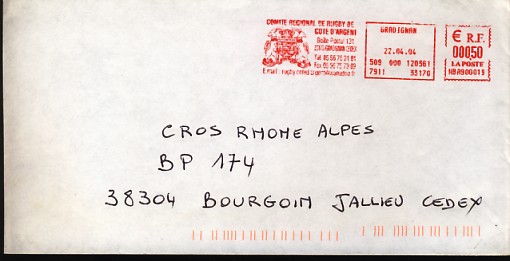 COMITE REGIONAL DE RUGBY DE
COTE D'ARGENT
Boite Postal 131
CEDEX
Tél. 05 56 75 21 81
Fax 05 56 75 79 89
E.mail :
GRADIGNAN
22.04.04
509 000 120561
7911 33170
€ R.F.
00050
LA POSTE
CROS RHONE ALPES
BP 174
38304 BOURGOIN JALLIEU CEDEX